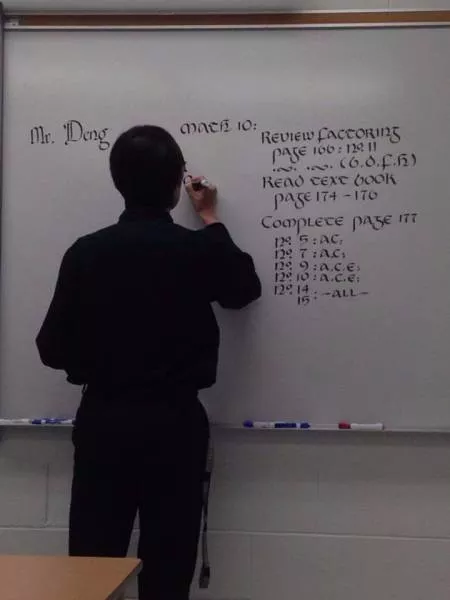 Mr. Deng
Math 10:
Review Factoring
page 166: no. 11
.... .... (b.d.f.h)
Read text book
page 174 - 176
Complete page 177
no. 5: A.C;
no. 7: A.C;
no. 9: A.C.E;
no. 10: A.C.E;
no. 14
15: -ALL-